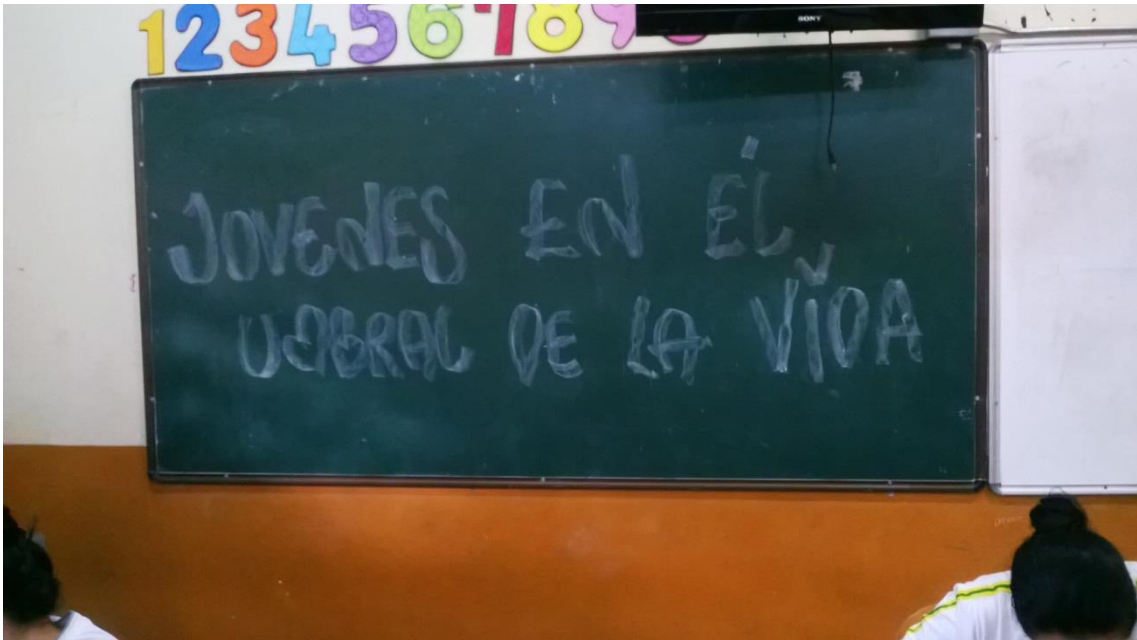 1 2 3 4 5 6 7 8 9
SONY
JOVENES EN ÉL
DE LA VIDA